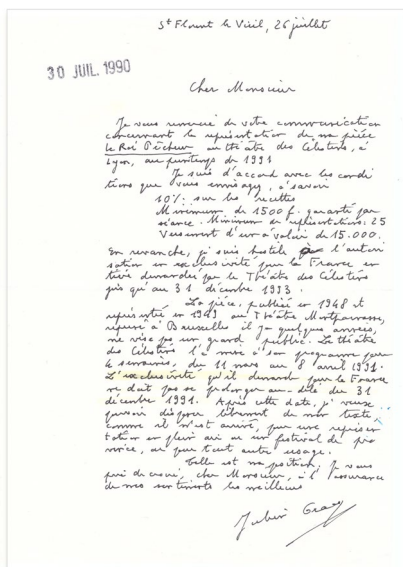 St Florent le Vieil, 26 juillet
30 JUIL. 1990
Cher Monsieur
Je vous remercie de votre communication
concernant la représentation de ma pièce
Le Roi Pêcheur au théâtre des Célestins, à
Lyon, au printemps de 1991
Je suis d'accord avec les condi
tions que vous envisagez, à savoir
10% sur les recettes
Minimum de 1500 f. garanti par
séance. Minimum de représentations: 25
Versement d'un à valoir de 15.000.
En revanche, je suis hostile à l'autori
sation en exclusivité pour la France en
tière demandée par le Théâtre des Célestins
jusqu'au 31 décembre 1993.
La pièce, publiée en 1948 et
représentée en 1949 au Théâtre Montparnasse,
reprise à Bruxelles il y a quelques années,
ne vise pas un grand public. Le théâtre
des Célestins l'a mise à son programme pour
4 semaines, du 11 mars au 8 avril 1991.
L'exclusivité qu'il demande pour la France
ne doit pas se prolonger au-delà du 31
décembre 1991. Après cette date, je veux
pouvoir disposer librement de mon texte,
comme il m'est arrivé, pour une représen
tation en plein air ou un festival de pro
vince, ou pour tout autre usage.
Telle est ma position. Je vous
prie de croire, cher Monsieur, à l'assurance
de mes sentiments les meilleurs
Julien Gracq